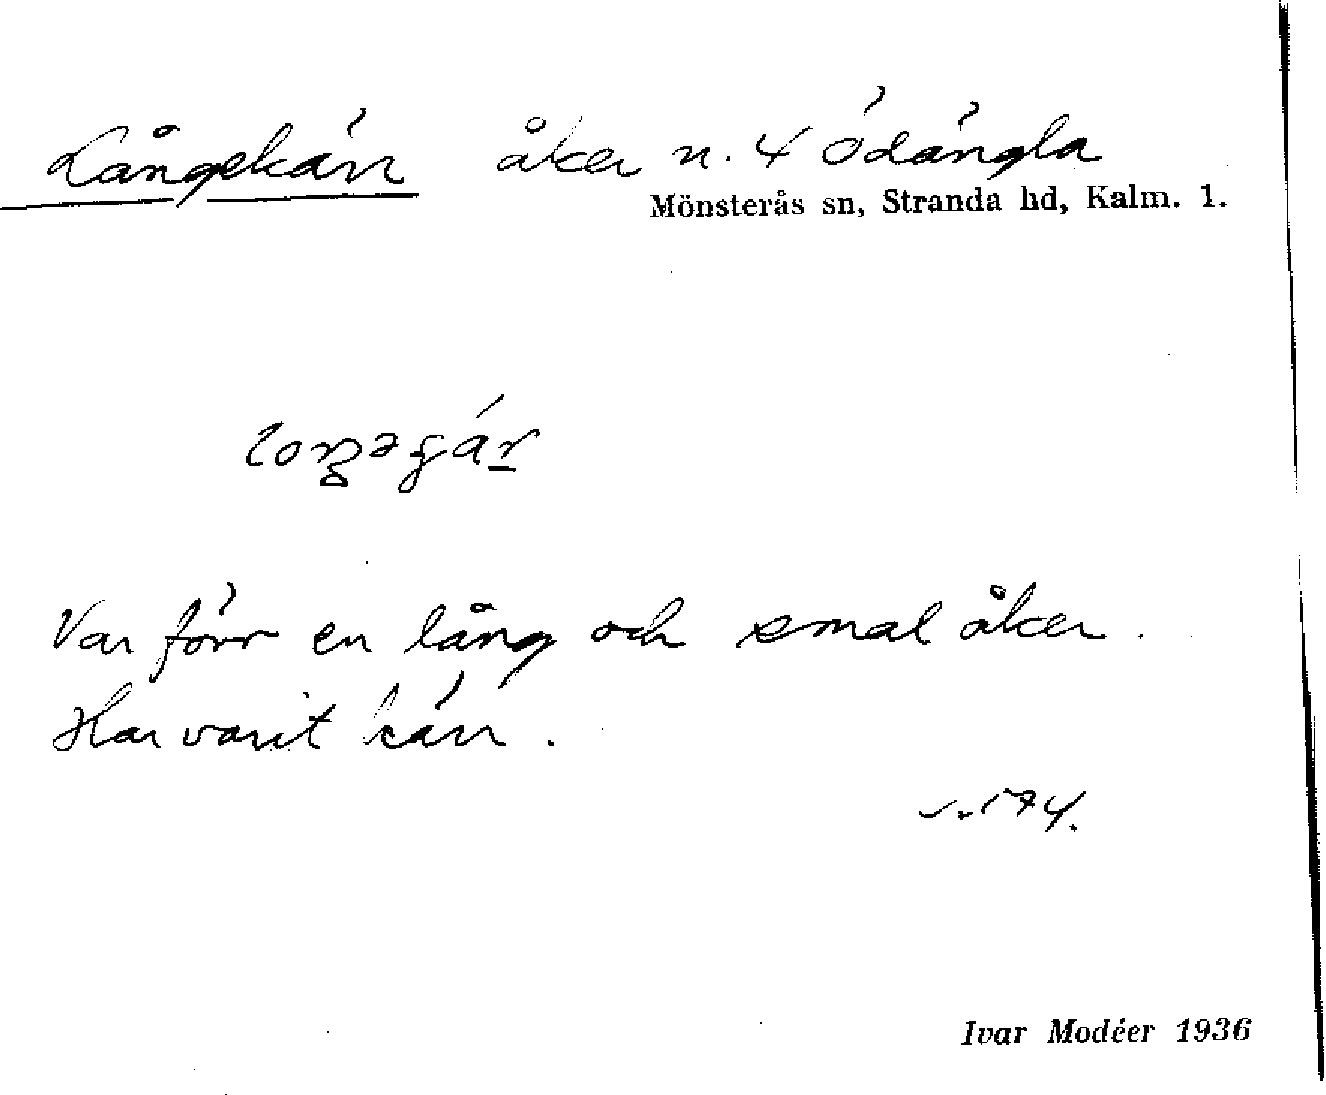 Långekärr åker n. 4 Ödängla
Mönsterås sn, Stranda hd, Kalm. l.
Var förr en lång och smal åker.
Har varit kärr.
Ivar Modéer 1936